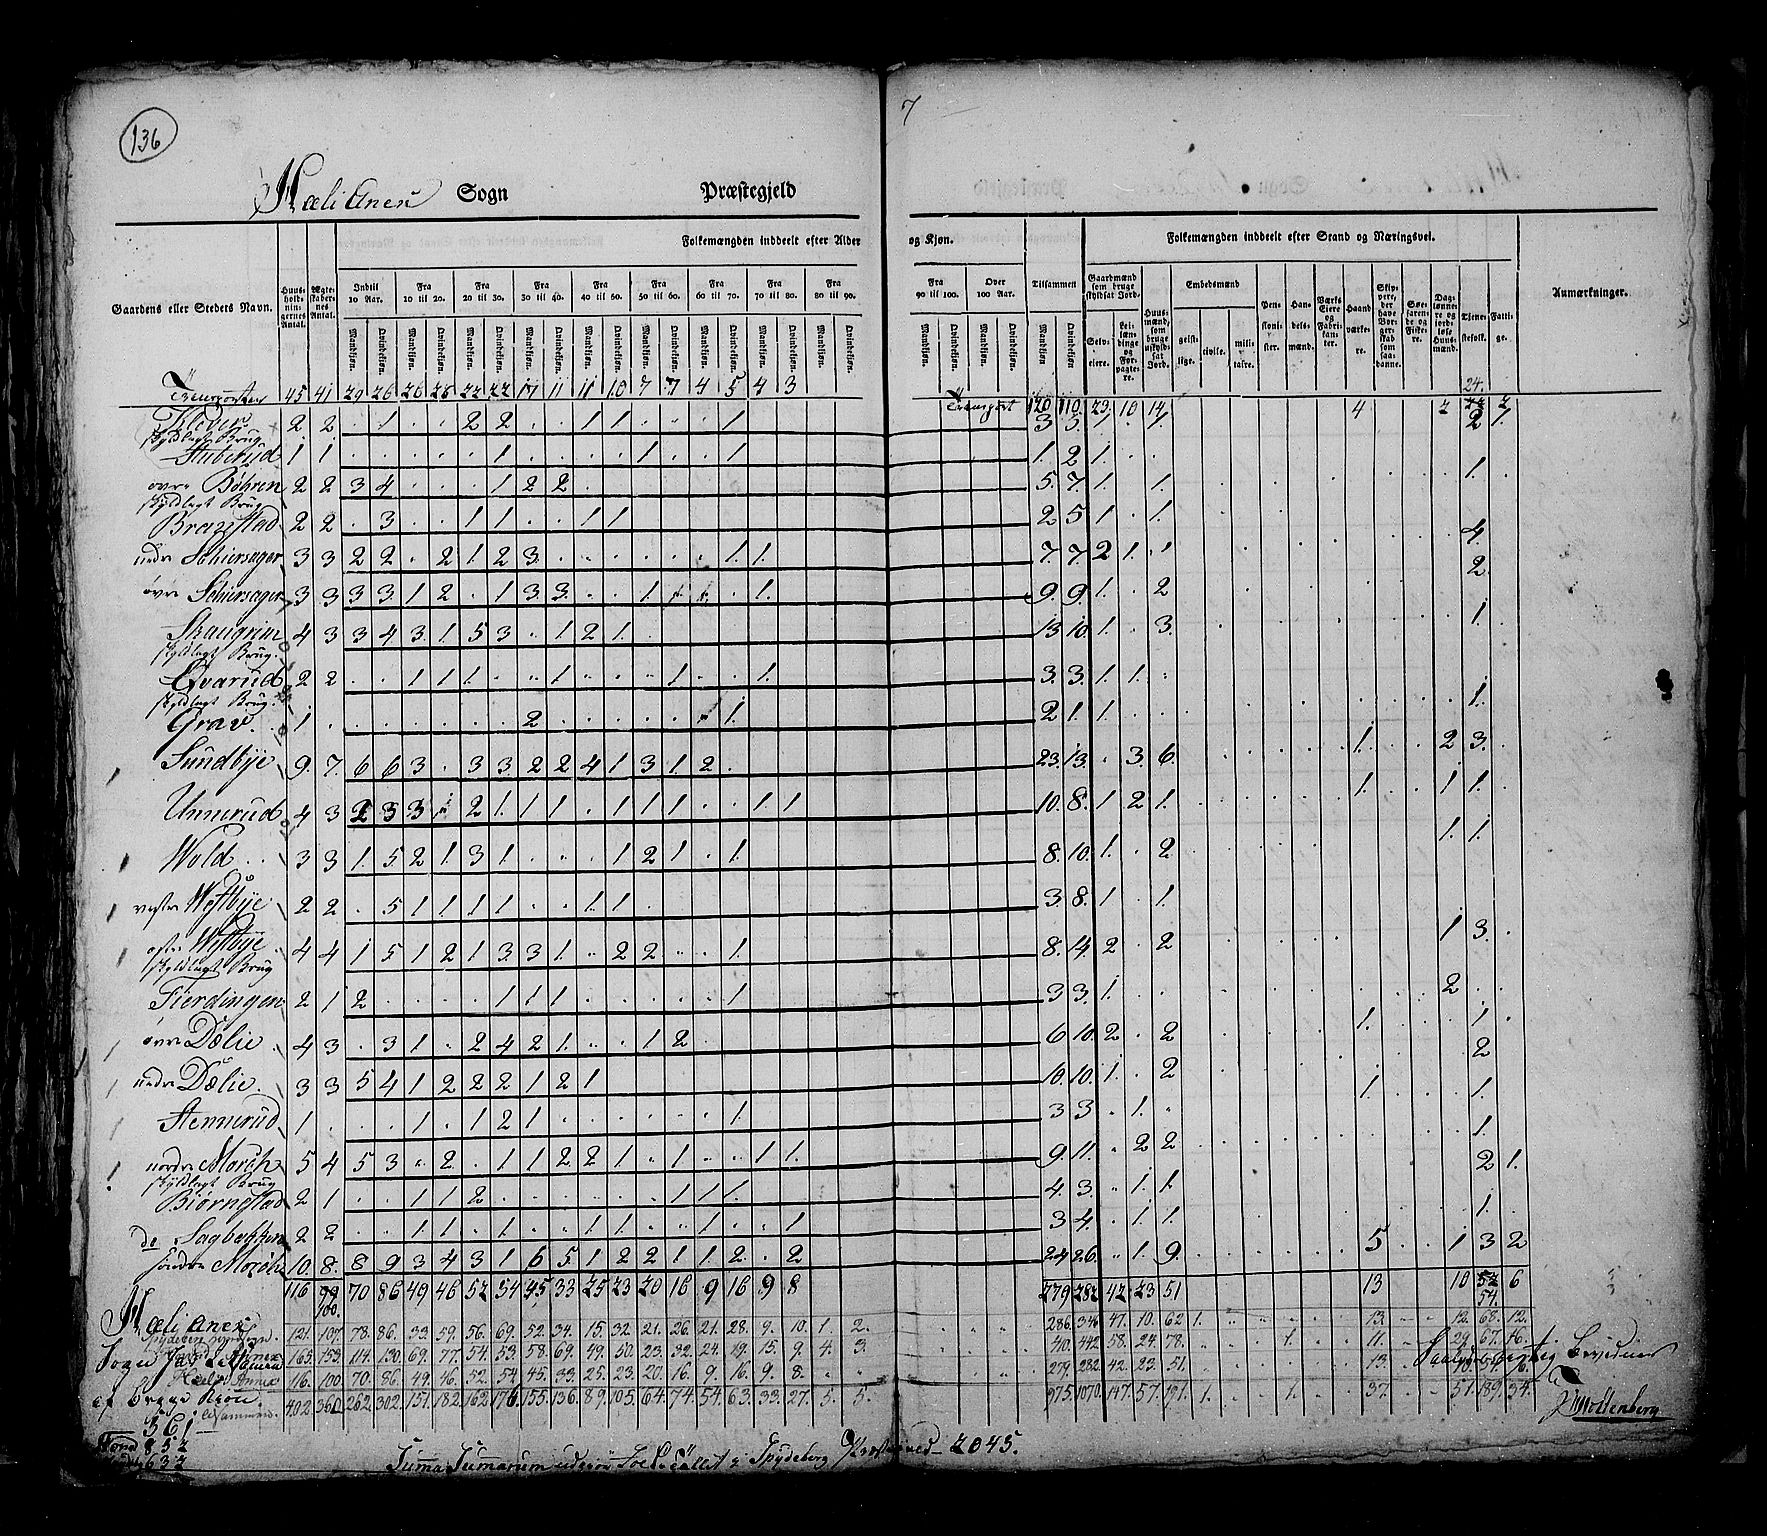 136
7
Hæli Anex Sogn Præstegjeld
Folkemængden inddeelt efter Alder og Kjøn.
Folkemængden inddeelt efter Stand og Næringsvei.
Gaardens eller Steders Navn.
Huusholdningernes Antal.
Ægteskabernes Antal.
Indtil 10 Aar.
Fra 10 til 20.
Fra 20 til 30.
Fra 30 til 40.
Fra 40 til 50.
Fra 50 til 60.
Fra 60 til 70.
Fra 70 til 80.
Fra 80 til 90.
Fra 90 til 100.
Over 100 Aar.
Tilsammen
Mandkjøn. Qvindekjøn.
Gaardmænd som bruge skyldsat Jord.
Selveiere.
Leilændinge og Forpagtere.
Huusmænd, som bruge uskyldsat Jord.
Embedsmænd
geistlige. civile. militaire.
Pensionister.
Handelsmænd.
Værks Eiere og Fabrikanter.
Haandværkere.
Skippere, der have Borgerskab som saadanne.
Søefarende og Fiskere.
Daglønnere og jordløse Huusmænd.
Tjenestefolk.
Fattige.
Anmærkninger.
Transporteres 45 41 29 26 26 28 22 22 17 11 11 10 7 7 4 5 4 3 Transport 120 110. 23. 10 14. 4 2 24. 2
Kleven 2 2 . 1 . . 2 2 . . 1 1 . . . 1 3 5. 1. . 1. 2 1.
skyldlagt Brug
Huberud 1 1 . . . . . 1 . . . . 1 . . 1 1. 2 1. . .
øvre Bøhren 2 2 3 4 . . . 1 2 2 . 5. 7. 1. . 1. 1.
skyldlagt Brug
Bragestad 2 2 . 3 . . 1 1 . . 1 1 2 5 1 . 1.
nedre Schiersager 3 3 2 2 . 2 1 2 3 . . . . . . 1. 1. 7. 7. 2 1. 1 4.
øvre Schiersager 3 3 3 3 1 2 . 1 3 3 . . 1 . . . 1. 9. 9. 1. . 2 2.
Skaugrim 4 3 3 4 3 1 5 3 . 1 2 1. 13. 10. 1. . 3. 1.
skyldlagt Brug.
Qvarud 2 2 . . 1 1 1 . . 1 . . . 1 . . 1. 3. 3. 1. 1. .
skyldlagt Brug.
Grav. 1 . . . . . . . 2 . . . . . . 1. 2 1. 1. 1.
Sundbye 9. 7. 6 6 3 . 3 3 2 2 4 1 3 1 2 . 23. 13. . 3. 6. 1. 2 3.
Unnerud 4 3 2 3 3 . 2 1 1 1 . 1 1 1 . . 1 1 10. 8. 1 2 1. 1. 1 1.
Wold 3 3 1 5 2 1 3 1 . . . 1 2 1 . 1. 8. 10. 1. . 2 1. 1.
vestre Westbye 2 2 . 5 1 1 1 1 . . 1 1 . 3. 8. 1 . 1.
østre Westbye 4 4 1 5 1 2 1 3 3 1 . 2 2 . . 1. 8. 14. 2 . 2 1 3.
skyldlagt Brug
Fierdingen 2 1 2 . . . . 1 1 1 . . . . . 1 3 3. 1. . . 2 . .
øvre Dælie 4 3 . 3 1 . 2 4 2 1. . . 1 2 6 10. 2 . 2 1. 1.
nedre Dælie. 3 3 5 4 1 2 2 2 1 2 1 10. 10. 1. . 2 2
Hennerud 1 . . . 1 . 1 2 1 . . . . . . 1. 3 3 . 1. . 1. 1.
nordre Morch 5 4 5 3 . 2 . 1 1 2 2 1 . 1 . . 1 1. 9. 11. . 2 2 1.
skyldlagt Brug
Biørngstad 2 1 . . 1 1 2 . . . . . . 1 1 1. 4. 3. . 1. 1. 2 1.
do Sagbechen 2 2 . . 1 1 . 1 . . 1 1 . . 1 . . 1 3 4. . 1. 1. 1.
søndre Mørch 10. 8. 8 9 3 4 3 1 6 5 1 2 2 1 1 2 . 2 24 26. . 1 9. 5 1 3 2
116 99 100. 70 86 49 46 52 54 45 33 25 23 20 16 9 16 9 8 279 282 42 23 51 13 10 52 54. 6
Hæli Anex
121. 107. 78. 86. 33. 59. 56. 69. 52. 34. 15. 32. 21. 26. 21. 28. 9. 10. 1. 2. 286. 346 47. 10. 62 1. 13. 12. 68. 12.
165. 153. 114. 130. 69. 77. 54. 53. 58. 69. 49. 50. 23. 32. 24. 19. 15. 9. 4. 3. 410. 442 58. 24. 78. 1. 11. 29. 67. 16.
116. 100 70. 86. 49. 46. 52. 54 45. 33. 25. 23. 20. 16. 9. 16. 9. 8. 279. 282. 42. 23. 51. 13
402. 360. 262. 302. 151. 182. 162 176 155. 136. 89. 105. 64. 74. 54. 63. 33. 27. 5. 5. 975. 1070. 147. 57. 191. 1. 1. 37. 51. 189. 34.
561
852
632
Summa Summarum udgiør Folketallet i Spydeberg Præstegield 2045.